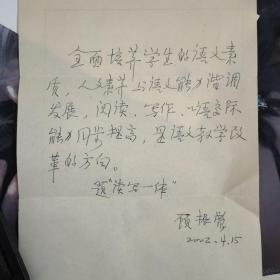 全面培养学生的语文素
质，人文素养与语文能力谐调
发展，阅读、写作、口语交际
能力同步提高，是语文教学改
革的方向。
题“读写一体”
顾振彪
2002.4.15